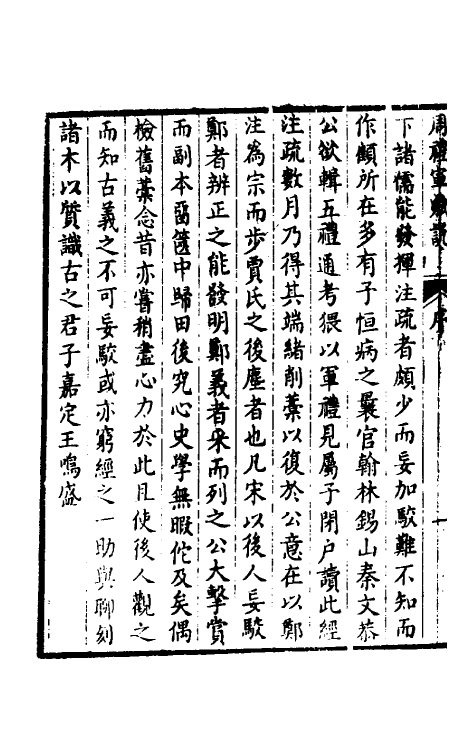 周禮軍賦說　序　一
下諸儒能發揮注疏者頗少而妄加駮難不知而
作顧所在多有予恒病之曩官翰林錫山秦文恭
公欲輯五禮通考猥以軍禮見屬予閉户讀此經
注疏數月乃得其端緒削藁以復於公意在以鄭
注為宗而步賈氏之後塵者也凡宋以後人妄駮
鄭者辨正之能發明鄭義者采而列之公大擊賞
而副本畱篋中歸田後究心史學無暇佗及矣偶
檢舊藁念昔亦嘗稍盡心力於此且使後人觀之
而知古義之不可妄駮或亦窮經之一助與聊刻
諸木以質識古之君子嘉定王鳴盛